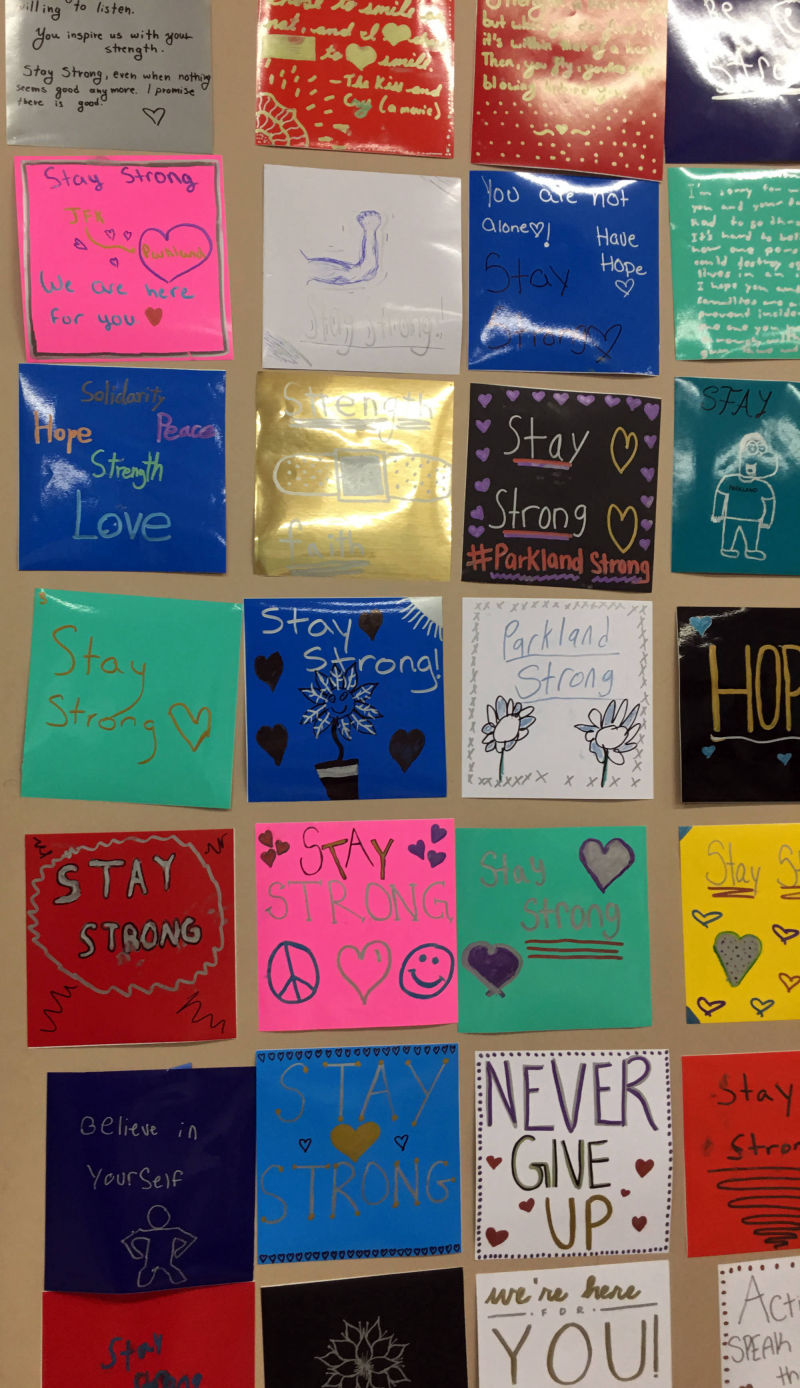 willing to listen.
You inspire us with your
strength.
Stay Strong, even when nothing
seems good anymore. I promise
there is good.
to smile
and I
to smile.
- The Kiss and
Cry (a movie)
but
it's within
Then, you fly,
blowing
Be
Strong
Stay Strong
JFK
Parkland
We are here
for you
Stay strong!
You are not
Alone!
Have
Hope
Stay
Strong
I'm sorry for
you and your
had to go
It's hard to
how one
could destroy
lives in an
I hope you and
families are
prevent
Solidarity
Hope
Peace
Strength
Love
Strength
faith
Stay
Strong
#Parkland Strong
STAY
PARKLAND
Stay
Strong
Stay
Strong!
Parkland
Strong
HOP
STAY
STRONG
STAY
STRONG
Stay
Strong
Stay St
Believe in
YourSelf
STAY
STRONG
NEVER
GIVE
UP
Stay
Stron
Stay
strong
we're here
FOR
YOU!
Acti
SPEAK
th